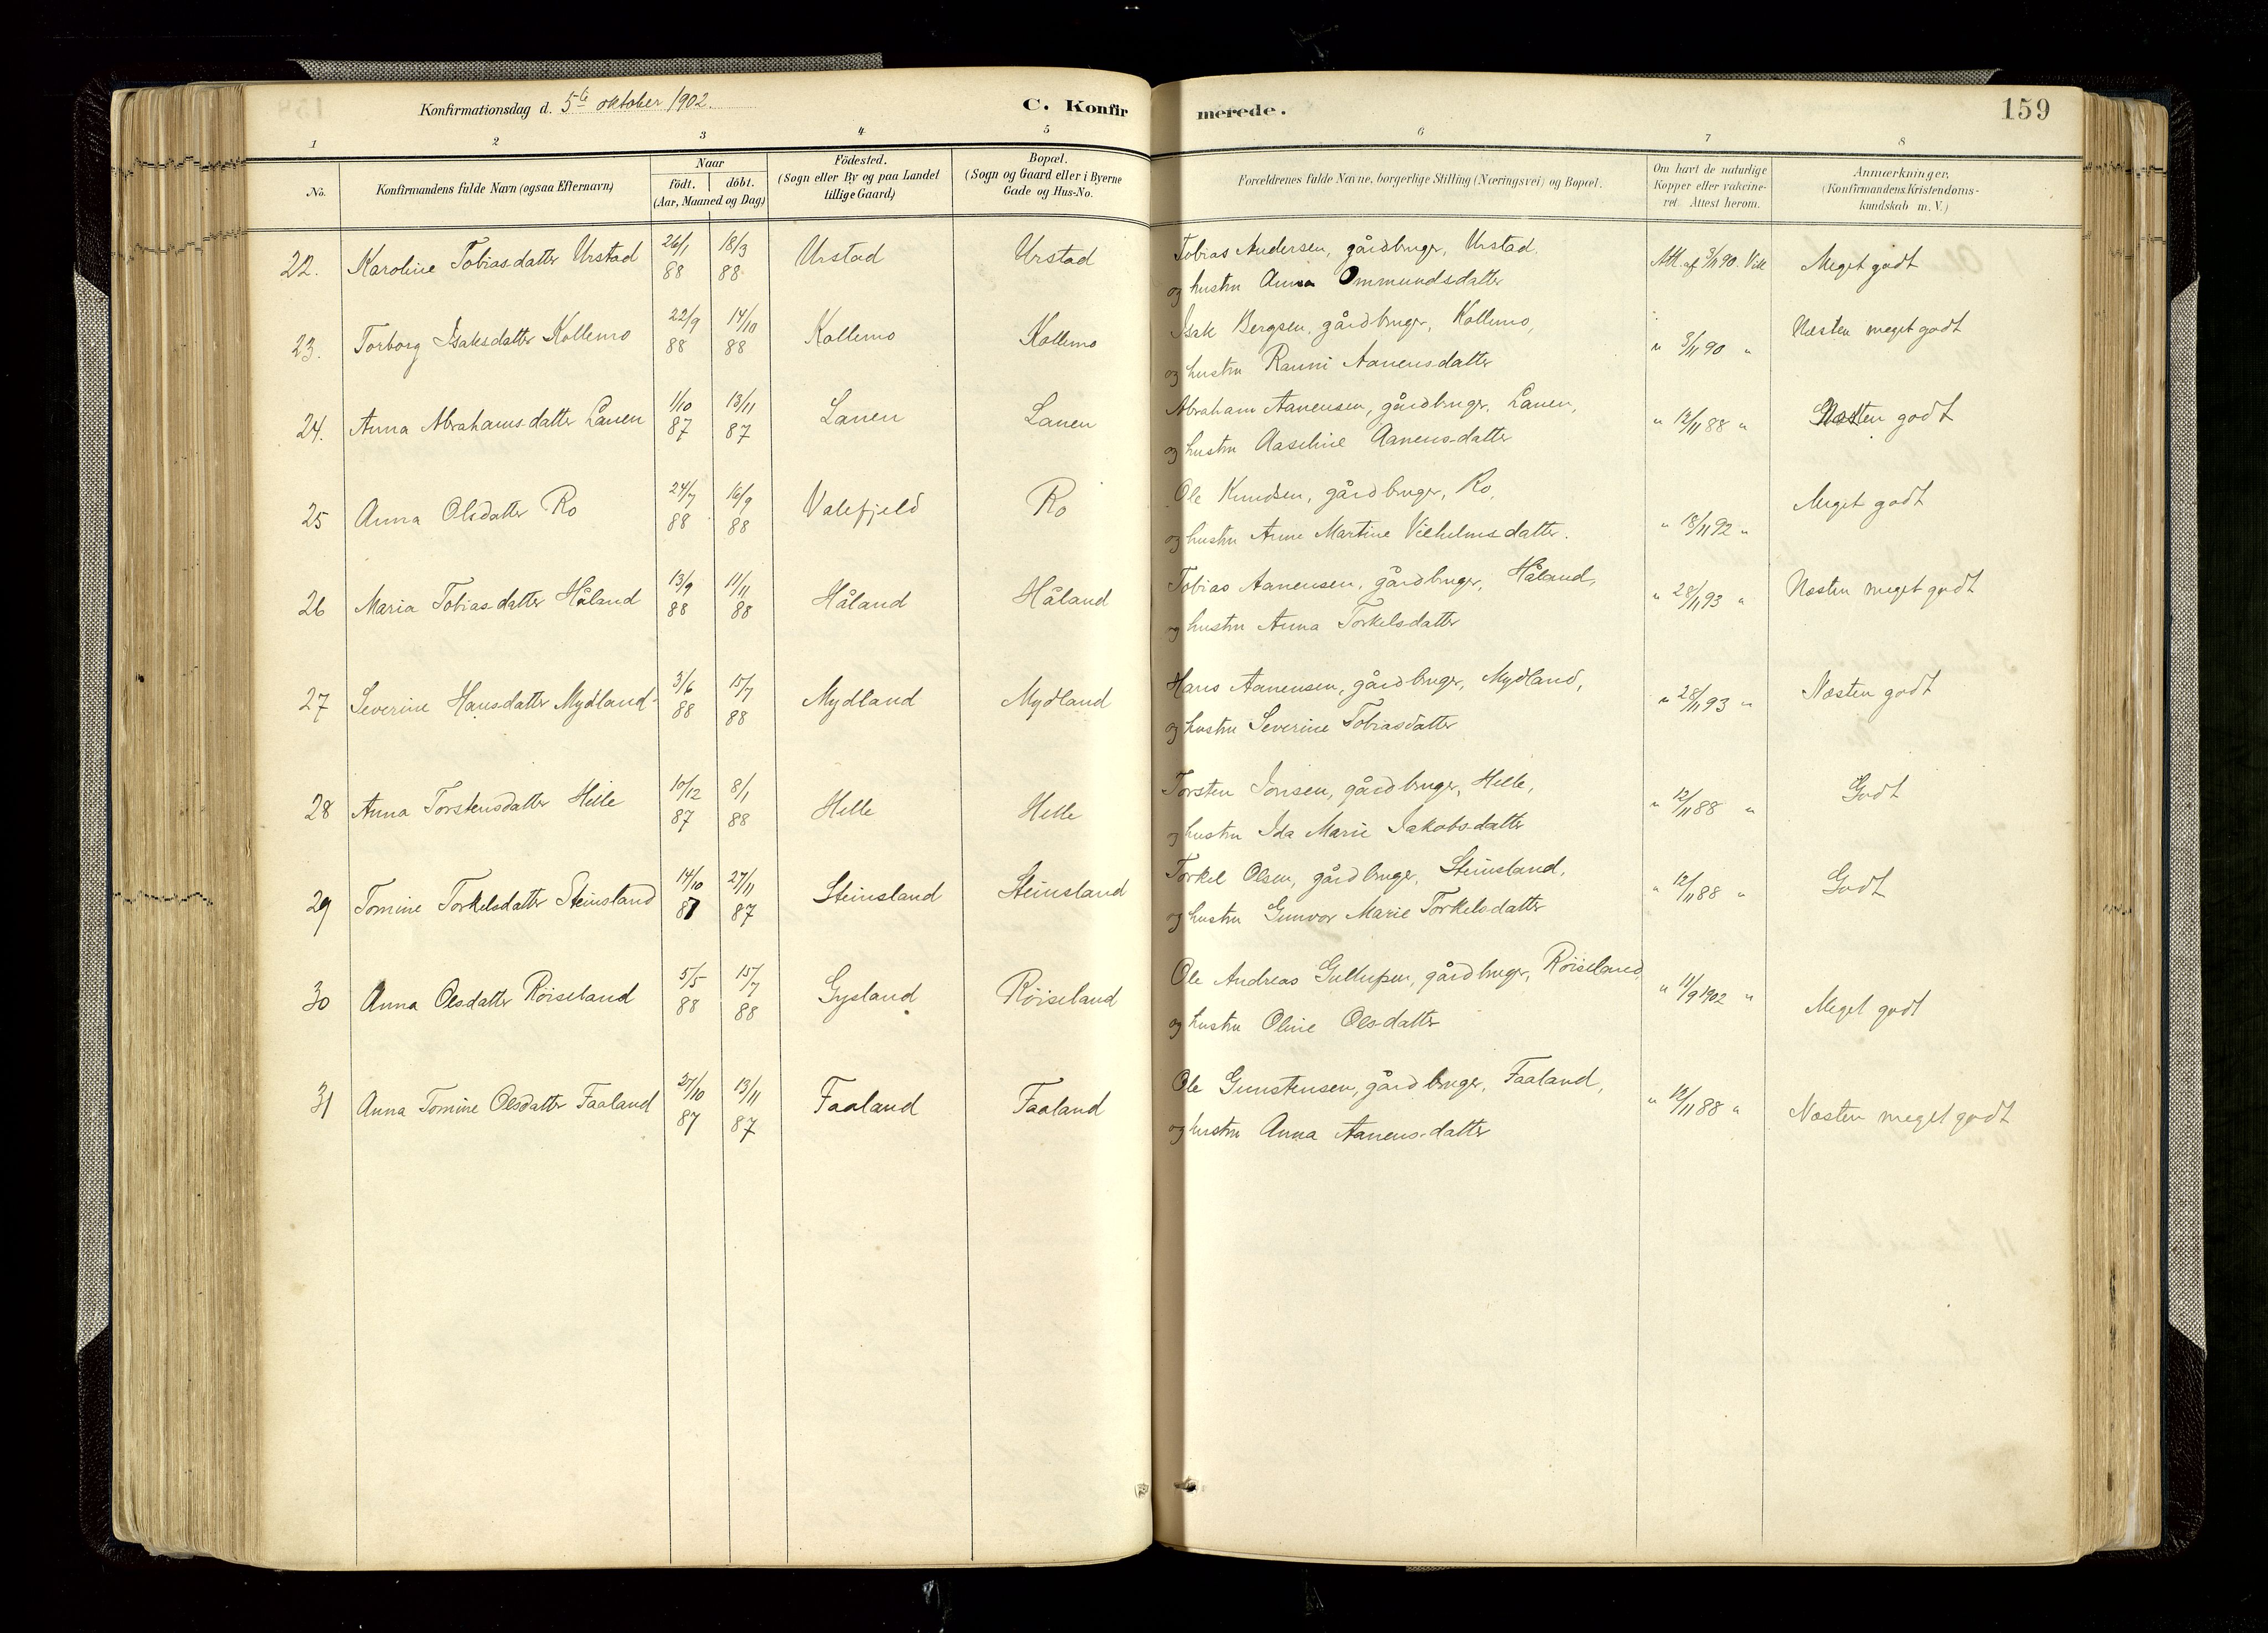 Konfirmationsdag d. 5te oktober 1902.
C. Konfirmerede.
159
1 2 3 4 5 6 7 8
No.
Konfirmandens fulde Navn (ogsaa Efternavn)
Naar
födt. | döbt.
(Aar, Maaned og Dag)
Födested.
(Sogn eller By og paa Landet
tillige Gaard)
Bopæl.
(Sogn og Gaard eller i Byerne
Gade og Hus-No.
Forældrenes fulde Navne, borgerlige Stilling (Næringsvei) og Bopæl.
Om havt de naturlige
Kopper eller vakcine-
ret. Attest herom.
Anmærkninger.
(Konfirmandens Kristendoms-
kundskab m. V.)
22. Karoline Tobiasdatter Urstad 26/1 88 18/3 88 Urstad Urstad Tobias Andersen, gårdbruger, Urstad.
og hustru Anna Ommundsdatter Att. af 3/11 90. Meget godt
23. Torborg Isaksdatter Kollemo 22/9 88 14/10 88 Kollemo Kollemo Isak Bergsen, gårdbruger, Kollemo,
og hustru Ranni Aanensdatter " 3/11 90 " Næsten meget godt
24. Anna Abrahamsdatter Lauen 1/10 87 13/11 87 Lauen Lauen Abraham Aanensen, gårdbruger, Lauen,
og hustru Aaseline Aanensdatter " 12/11 88 " Næsten godt
25 Anna Olsdatter Ro 24/7 88 16/9 88 Valefjeld Ro Ole Knudsen, gårdbruger, Ro,
og hustru Anne Martine Vilhelmsdatter. " 18/11 92 " Meget godt
26 Maria Tobiasdatter Håland 13/9 88 11/11 88 Håland Håland Tobias Aanensen, gårdbruger, Håland,
og hustru Anna Torkelsdatter " 28/11 93 " Næsten meget godt
27 Severine Hansdatter Mydland 3/6 88 15/7 88 Mydland Mydland Hans Aanensen, gårdbruger, Mydland,
og hustru Severine Tobiasdatter " 28/11 93 " Næsten godt
28 Anna Torstensdatter Helle 10/12 87 8/1 88 Helle Helle Torsten Jonsen, gårdbruger, Helle,
og hustru Ida Marie Jakobsdatter " 12/11 88 " Godt
29 Tomine Torkelsdatter Steinsland 14/10 87 27/11 87 Steinsland Steinsland Torkel Olsen, gårdbruger, Steinsland,
og hustru Gunvor Marie Torkelsdatter " 12/11 88 " Godt
30 Anna Olsdatter Röiseland 5/5 88 15/7 88 Gysland Röiseland Ole Andreas gårdbruger, Röiseland
og hustru Oline Olsdatter " 11/9 1902 " Meget godt
31 Anna Tomine Olsdatter Faaland 27/10 87 13/11 87 Faaland Faaland Ole Gunstensen, gårdbruger, Faaland,
og hustru Anna Aanensdatter " 12/11 88 " Næsten meget godt